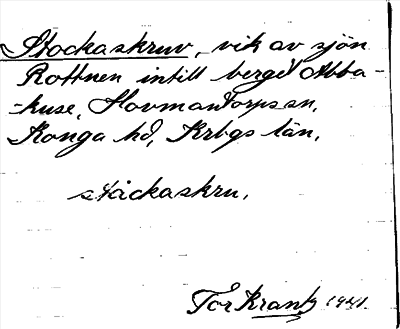 Stockaskruv, vik av sjön
Rottnen intill berget Abba-
-kuse, Hovmantorps sn,
Konga hd, Krbgs län,
ståckaskru,
Tor Krantz 1941.